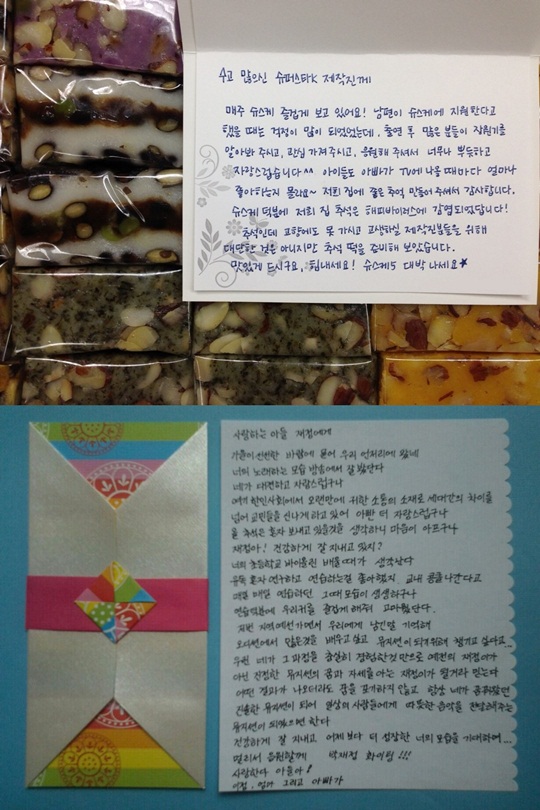 수고 많으신 슈퍼스타K 제작진께
매주 슈스케 즐겁게 보고 있어요! 남편이 슈스케에 지원한다고
했을 때는 걱정이 많이 되었었는데, 출연 후 많은 분들이 장원기를
알아봐 주시고, 관심 가져주시고, 응원해 주셔서 너무나 뿌듯하고
자랑스럽습니다^^ 아이들도 아빠가 TV에 나올 때마다 얼마나
좋아하는지 몰라요~ 저희 집에 좋은 추억 만들어 주셔서 감사합니다.
슈스케 덕분에 저희 집 추석은 해피바이러스에 감염되었답니다!
추석인데 고향에도 못 가시고 고생하실 제작진분들을 위해
대단한 것은 아니지만 추석 떡을 준비해 보았습니다.
맛있게 드시구요, 힘내세요! 슈스케5 대박 나세요★
사랑하는 아들 재정에게
가을이 선선한 바람에 묻어 우리 언저리에 왔네
너의 노래하는 모습 방송에서 잘 봤단다
네가 대견하고 자랑스럽구나
여기 한인사회에서 오랜만에 귀한 소통의 소재로 세대간의 차이를
넘어 교민들을 신나게 하고 있어 아빤 더 자랑스럽구나
올 추석은 혼자 보내고 있을것을 생각하니 마음이 아프구나
재정아! 건강하게 잘 지내고 있지?
너의 초등학교 바이올린 배울때가 생각난다
유독 혼자 연구하고 연습하는걸 좋아했지. 교내 콩쿨 나간다고
매일 매일 연습하던 그때 모습이 생생하구나
연습덕분에 우리귀를 즐겁게 해줘서 고마웠단다.
저번 지역예선가면서 우리에게 남긴말 기억해
오디션에서 많은것을 배우고 싶고 뮤지션이 되기위해 챙기고 싶다고...
우린 네가 그 과정을 충실히 경험한것 만으로 예전의 재정이가
아닌 진정한 뮤지션의 꿈과 자세를 아는 재정이가 될거라 믿는다
어떤 결과가 나오더라도 꿈을 포기하지 않고 항상 네가 꿈꿔왔던
진솔한 뮤지션이 되어 일상의 사람들에게 따뜻한 음악을 전달해주는
뮤지션이 되었으면 한다
건강하게 잘 지내고 어제보다 더 성장한 너의 모습을 기대하며...
멀리서 응원할께 박재정 화이팅!!!
사랑한다 아들아!
엄마 그리고 아빠가